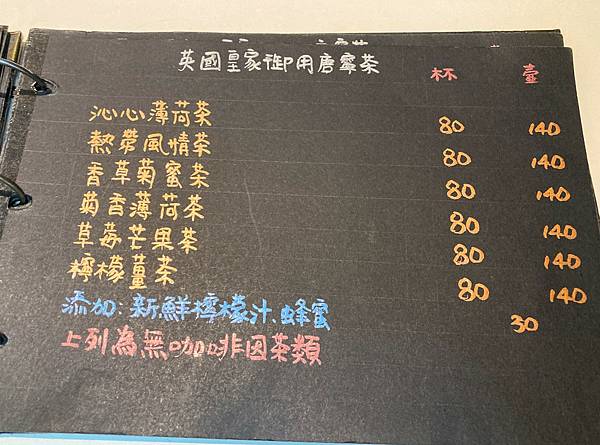 英國皇家御用唐寧茶 杯 壺
沁心薄荷茶 80 140
熱帶風情茶 80 140
香草菊蜜茶 80 140
菊香薄荷茶 80 140
草莓芒果茶 80 140
檸檬薑茶 80 140
添加:新鮮檸檬汁、蜂蜜 30
上列為無咖啡因茶類